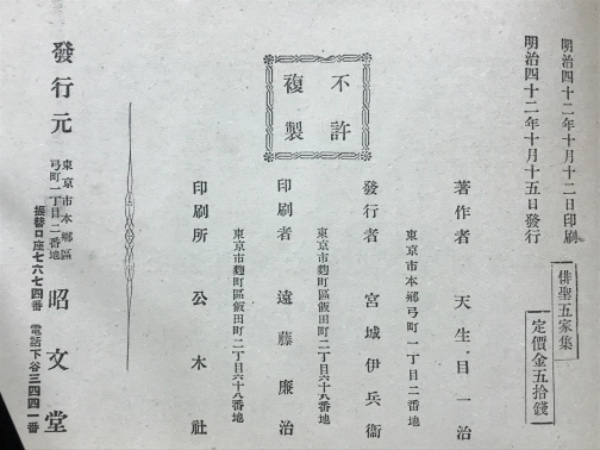 明治四十二年十月十二日印刷
明治四十二年十月十五日發行
俳聖五家集
定價金五拾錢
著作者 天生目一治
東京市本鄕弓町一丁目二番地
發行者 宮城伊兵衞
東京市麴町區飯田町二丁目六十八番地
印刷者 遠藤廉治
東京市麴町區飯田町二丁目六十八番地
印刷所 公木社
不許
複製
發行元
東京市本鄕區
弓町一丁目二番地
昭文堂
振替口座七六七四番 電話下谷三四四一番